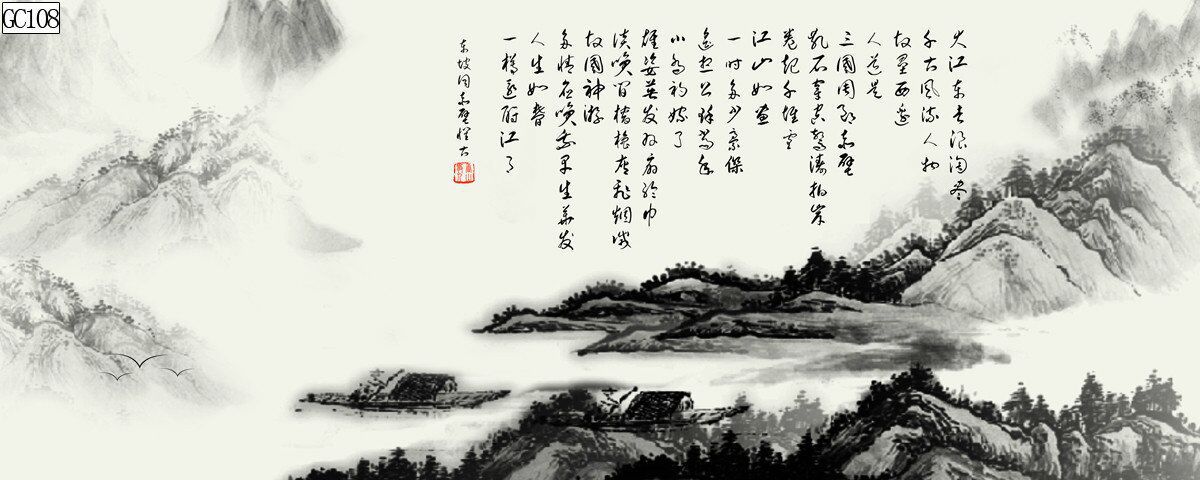 GC108
大江东去浪淘尽
千古风流人物
故垒西边
人道是
三國周郎赤壁
乱石穿空惊涛拍岸
卷起千堆雪
江山如画
一时多少豪傑
遥想公瑾当年
小乔初嫁了
雄姿英发羽扇纶巾
谈笑间樯橹灰飞烟灭
故國神游
多情应笑我早生华发
人生如梦
一樽还酹江月
东坡词赤壁怀古